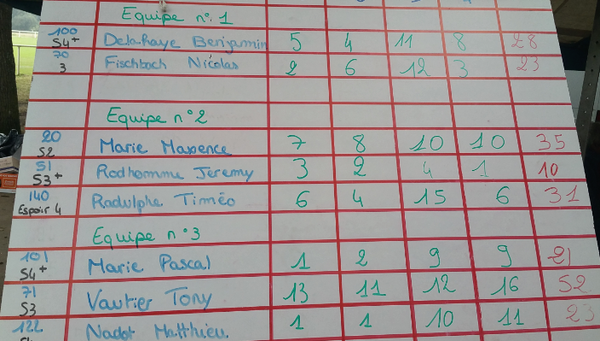 Equipe n°1
100 S4+ Delahaye Benjamin 5 4 11 8 28
70 3 Fischbach Nicolas 2 6 12 3 23
Equipe n°2
20 S2 Marie Maxence 7 8 10 10 35
51 S3+ Rodhomme Jeremy 3 2 4 1 10
140 Espoir 4 Radulphe Timéo 6 4 15 6 31
Equipe n°3
101 S4+ Marie Pascal 1 2 9 9 21
71 S3 Vautier Tony 13 11 12 16 52
122 Nadot Matthieu. 1 1 10 11 23